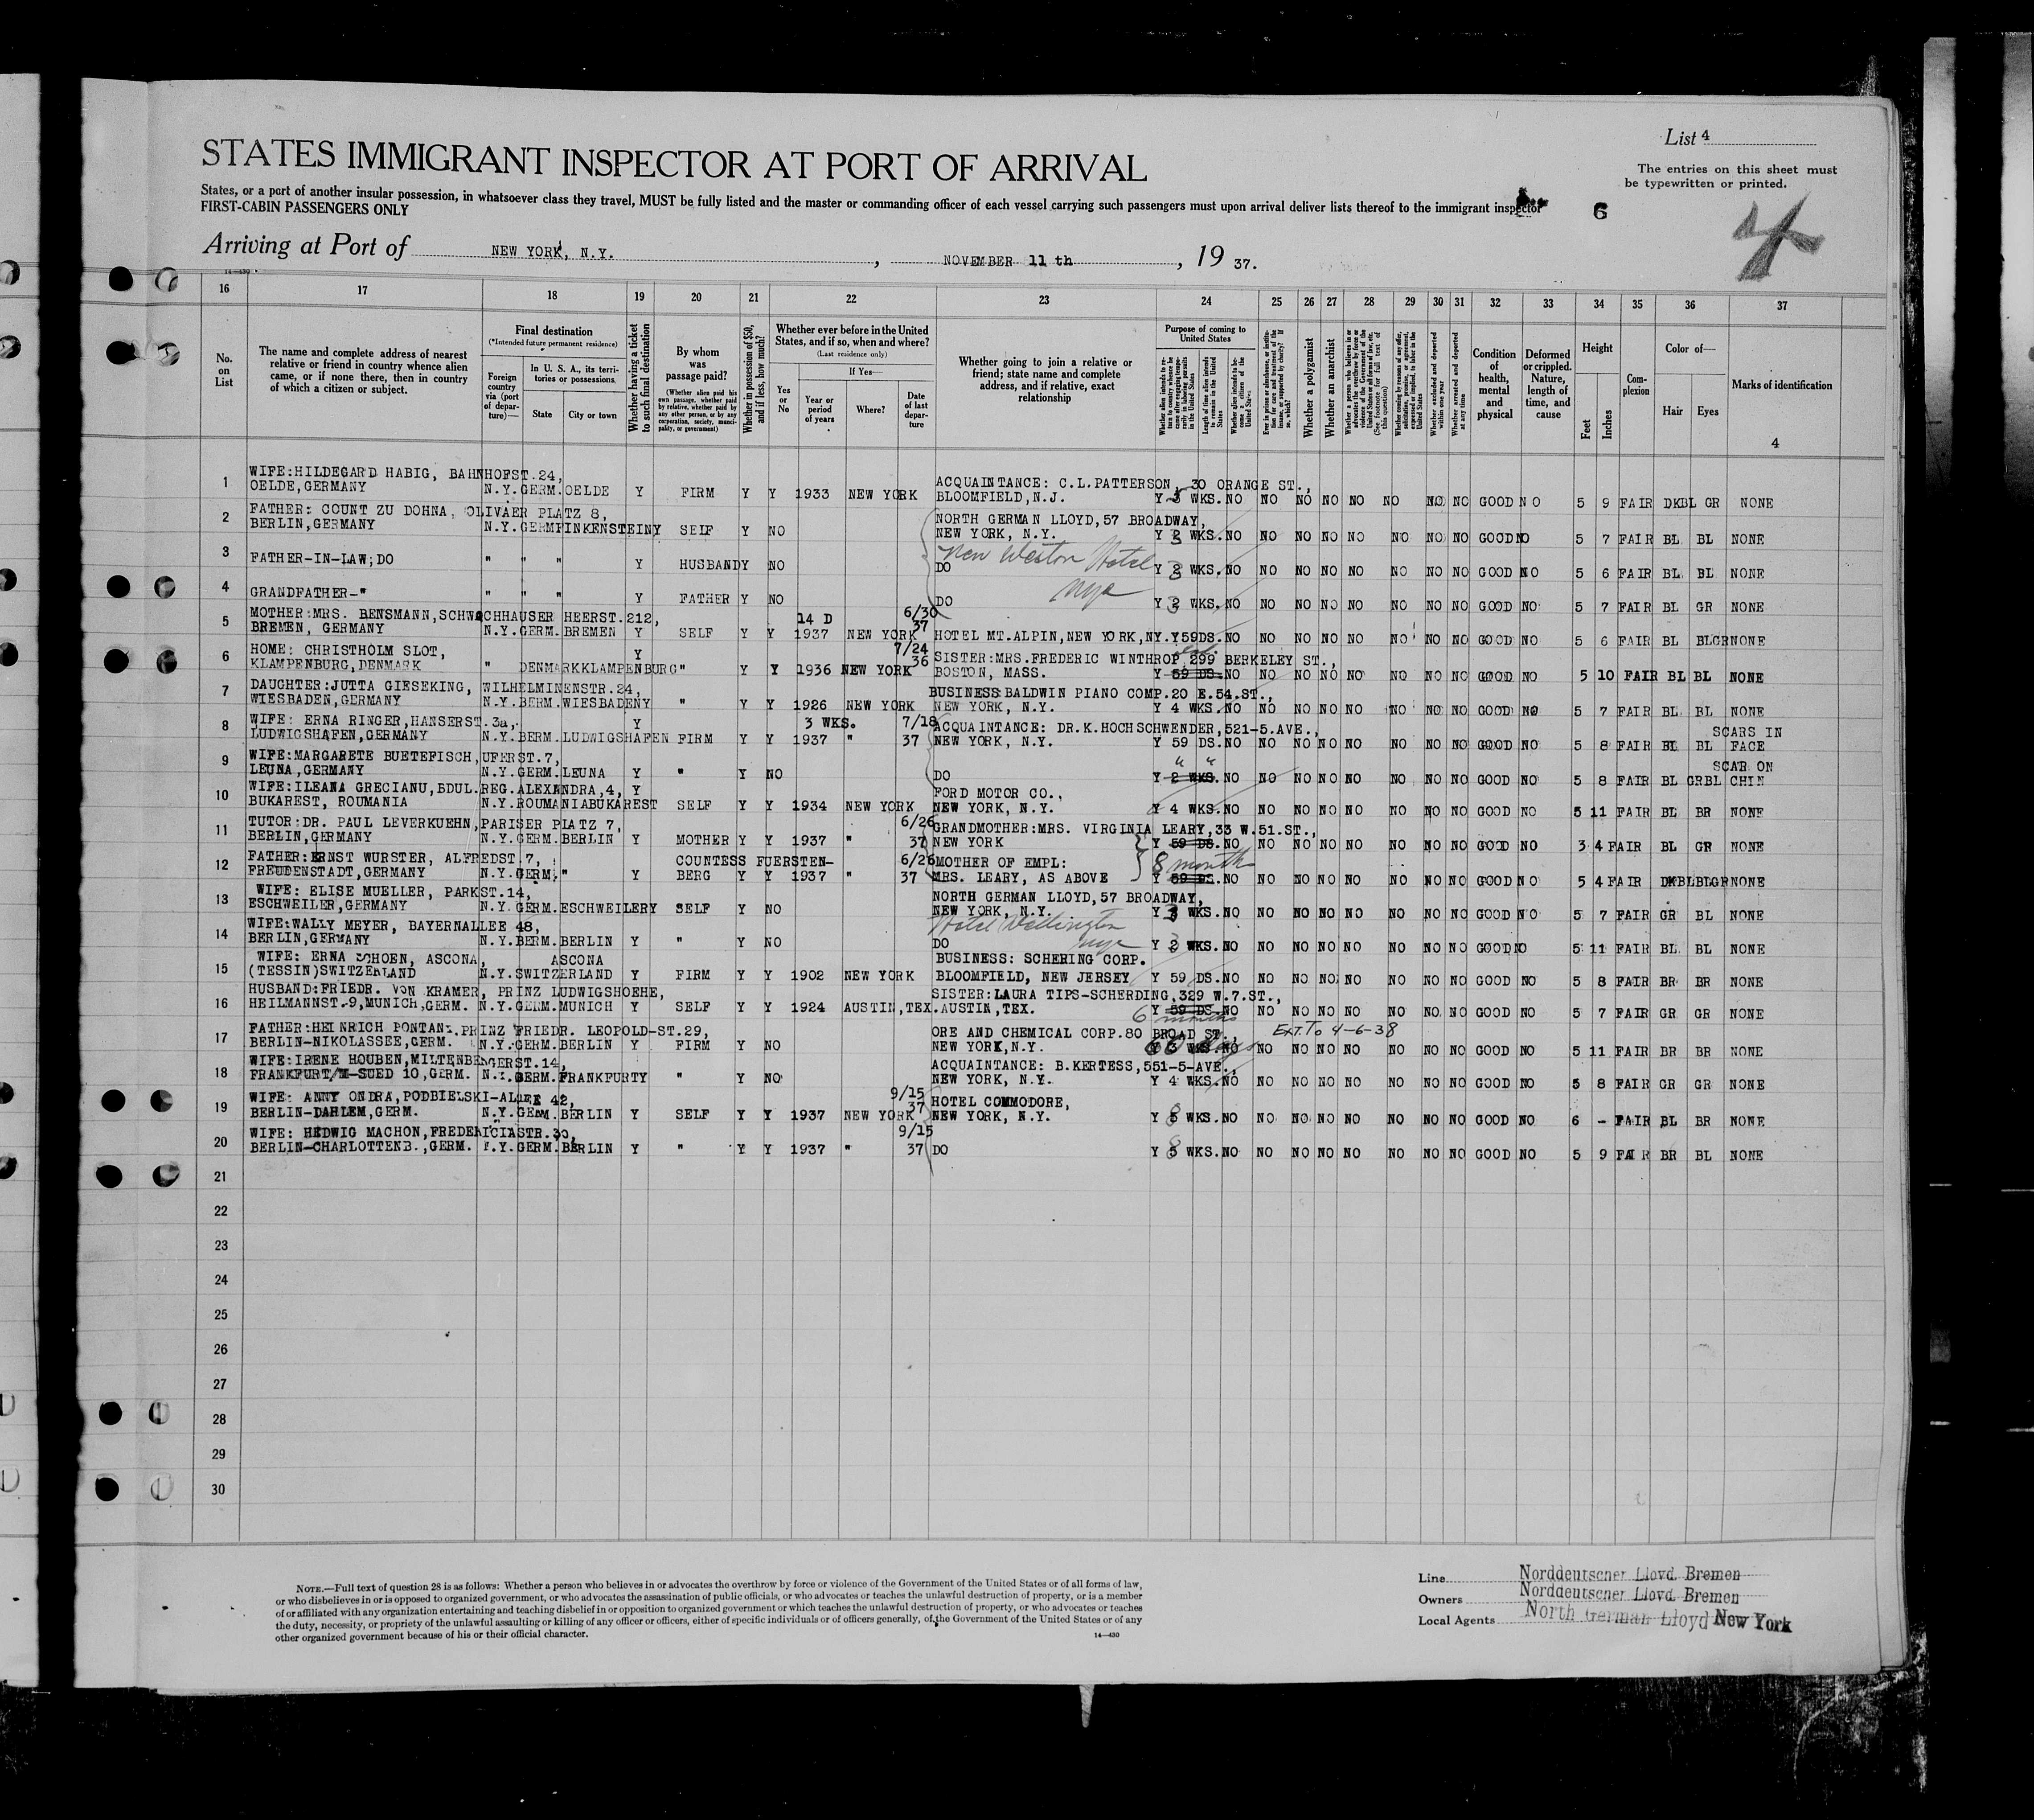 List 4
STATES IMMIGRANT INSPECTOR AT PORT OF ARRIVAL
The entries on this sheet must
be typewritten or printed.
States, or a port of another insular possession, in whatsoever class they travel, MUST be fully listed and the master or commanding officer of each vessel carrying such passengers must upon arrival deliver lists thereof to the immigrant inspector
FIRST-CABIN PASSENGERS ONLY
6
4
Arriving at Port of NEW YORK, N.Y. , NOVEMBER 11 th , 19 37.
14—430
16 17 18 19 20 21 22 23 24 25 26 27 28 29 30 31 32 33 34 35 36 37
No. on List
The name and complete address of nearest relative or friend in country whence alien came, or if none there, then in country of which a citizen or subject.
Final destination
(*Intended future permanent residence)
Foreign country via (port of departure)—
In U. S. A., its territories or possessions.
State
City or town
Whether having a ticket to such final destination
By whom was passage paid?
(Whether alien paid his own passage, whether paid by relative, whether paid by any other person, or by any corporation, society, municipality, or government)
Whether in possession of $50, and if less, how much?
Whether ever before in the United States, and if so, when and where?
(Last residence only)
Yes or No
If Yes—
Year or period of years
Where?
Date of last departure
Whether going to join a relative or friend; state name and complete address, and if relative, exact relationship
Purpose of coming to United States
Whether a polygamist
Whether an anarchist
Whether excluded and deported within one year
Whether arrested and deported at any time
Condition of health, mental and physical
Deformed or crippled. Nature, length of time, and cause
Height
Feet
Inches
Complexion
Color of—
Hair
Eyes
Marks of identification
4
1 WIFE:HILDEGARD HABIG, BAHNHOFST.24, ACQUAINTANCE: C.L.PATTERSON, 30 ORANGE ST.,
OELDE,GERMANY N.Y.GERM.OELDE Y FIRM Y Y 1933 NEW YORK BLOOMFIELD,N.J. Y WKS.NO NO NO NO NO NO NO NO GOOD NO 5 9 FAIR DKBL GR NONE
2 FATHER: COUNT ZU DOHNA, OLIVAER PLATZ 8, NORTH GERMAN LLOYD,57 BROADWAY,
BERLIN,GERMANY N.Y.GERMFINKENSTEINY SELF Y NO NEW YORK, N.Y. Y WKS.NO NO NO NO NO NO NO NO GOOD NO 5 7 FAIR BL BL NONE
New Weston Hotel
3 FATHER-IN-LAW;DO " " " Y HUSBANDY NO DO Y WKS.NO NO NO NO NO NO NO NO GOOD NO 5 6 FAIR BL BL NONE
nyc
4 GRANDFATHER-" " " " Y FATHER Y NO DO Y WKS.NO NO NO NO NO NO NO NO GOOD NO 5 7 FAIR BL GR NONE
5 MOTHER:MRS. BENSMANN,SCHWACHHAUSER HEERST.212, 14 D 6/30
BREMEN, GERMANY N.Y.GERM. BREMEN Y SELF Y Y 1937 NEW YORK 37 HOTEL MT.ALPIN,NEW YORK,NY.Y59DS.NO NO NO NO NO NO NO NO GOOD NO 5 6 FAIR BL BLGRNONE
6 HOME: CHRISTHOLM SLOT, Y 7/24 SISTER:MRS.FREDERIC WINTHROP 299 BERKELEY ST.,
KLAMPENBURG,DENMARK " DENMARKKLAMPENBURG" Y Y 1936 NEW YORK 36 BOSTON, MASS. Y 59 DS.NO NO NO NO NO NO NO NO GOOD NO 5 10 FAIR BL BL NONE
7 DAUGHTER:JUTTA GIESEKING, WILHELMINENSTR.24, BUSINESS:BALDWIN PIANO COMP.20 E.54.ST.,
WIESBADEN,GERMANY N.Y.BERM.WIESBADENY " Y Y 1926 NEW YORK NEW YORK, N.Y. Y 4 WKS.NO NO NO NO NO NO NO NO GOOD NO 5 7 FAIR BL BL NONE
8 WIFE: ERNA RINGER,HANSERST.3a, Y 3 WKS. 7/18 ACQUAINTANCE: DR.K.HOCHSCHWENDER,521-5.AVE., SCARS IN
LUDWIGSHAFEN,GERMANY N.Y.BERM.LUDWIGSHAFEN FIRM Y Y 1937 " 37 NEW YORK, N.Y. Y 59 DS.NO NO NO NO NO NO NO NO GOOD NO 5 8 FAIR BL BL FACE
9 WIFE:MARGARETE BUETEFISCH,UFERST.7, " " SCAR ON
LEUNA,GERMANY N.Y.GERM.LEUNA Y " Y NO DO Y 2 WKS.NO NO NO NO NO NO NO NO GOOD NO 5 8 FAIR BL GRBL CHIN
10 WIFE:ILEANA GRECIANU,BDUL.REG.ALEXANDRA,4, Y FORD MOTOR CO.,
BUKAREST, ROUMANIA N.Y.ROUMANIABUKAREST SELF Y Y 1934 NEW YORK NEW YORK, N.Y. Y 4 WKS.NO NO NO NO NO NO NO NO GOOD NO 5 11 FAIR BL BR NONE
11 TUTOR:DR. PAUL LEVERKUEHN,PARISER PLATZ 7, 6/26 GRANDMOTHER:MRS. VIRGINIA LEARY,33 W.51.ST.,
BERLIN,GERMANY N.Y.GERM.BERLIN Y MOTHER Y Y 1937 " 37 NEW YORK Y 59 DS.NO NO NO NO NO NO NO NO GOOD NO 3 4 FAIR BL GR NONE
12 FATHER:ERNST WURSTER, ALFREDST.7, COUNTESS FUERSTEN- 6/26 MOTHER OF EMPL: 8 months
FREUDENSTADT,GERMANY N.Y.GERM. " Y BERG Y Y 1937 " 37 MRS. LEARY, AS ABOVE Y 59 DS.NO NO NO NO NO NO NO NO GOOD NO 5 4 FAIR DKBLBLGRNONE
13 WIFE: ELISE MUELLER, PARKST.14, NORTH GERMAN LLOYD,57 BROADWAY,
ESCHWEILER,GERMANY N.Y.GERM.ESCHWEILERY SELF Y NO NEW YORK, N.Y. Y WKS.NO NO NO NO NO NO NO NO GOOD NO 5 7 FAIR GR BL NONE
Hotel Wellington
14 WIFE:WALLY MEYER, BAYERNALLEE 48, nyc
BERLIN,GERMANY N.Y.BERM.BERLIN Y " Y NO DO Y 2 WKS.NO NO NO NO NO NO NO NO GOOD NO 5 11 FAIR BL BL NONE
15 WIFE: ERNA SCHOEN, ASCONA, ASCONA BUSINESS: SCHERING CORP.
(TESSIN)SWITZERLAND N.Y.SWITZERLAND Y FIRM Y Y 1902 NEW YORK BLOOMFIELD, NEW JERSEY Y 59 DS.NO NO NO NO NO NO NO NO GOOD NO 5 8 FAIR BR BR NONE
16 HUSBAND:FRIEDR. VON KRAMER, PRINZ LUDWIGSHOEHE, SISTER:LAURA TIPS-SCHERDING,329 W.7.ST.,
HEILMANNST.9,MUNICH,GERM. N.Y.GERM.MUNICH Y SELF Y Y 1924 AUSTIN,TEX.AUSTIN,TEX. Y 59 DS.NO NO NO NO NO NO NO NO GOOD NO 5 7 FAIR GR GR NONE
6 months
17 FATHER:HEINRICH PONTANI.PRINZ FRIEDR. LEOPOLD-ST.29, ORE AND CHEMICAL CORP.80 BROAD ST., EXT. To 4-6-38
BERLIN-NIKOLASSEE,GERM. N.Y.GERM.BERLIN Y FIRM Y NO NEW YORK,N.Y. 60 days WKS.NO NO NO NO NO NO NO NO GOOD NO 5 11 FAIR BR BR NONE
18 WIFE:IRENE HOUBEN,MILTENBERGERST.14, ACQUAINTANCE: B.KERTESS,551-5-AVE.,
FRANKFURT/M-SUED 10,GERM. N.Y.GERM.FRANKFURTY " Y NO NEW YORK, N.Y. Y 4 WKS.NO NO NO NO NO NO NO NO GOOD NO 5 8 FAIR GR GR NONE
19 WIFE: ANNY ONDRA,PODBIELSKI-ALLEE 42, 9/15 HOTEL COMMODORE,
BERLIN-DAHLEM,GERM. N.Y.GERM.BERLIN Y SELF Y Y 1937 NEW YORK 37 NEW YORK, N.Y. Y 8 WKS.NO NO NO NO NO NO NO NO GOOD NO 6 - FAIR BL BR NONE
20 WIFE: HEDWIG MACHON,FREDERICIASTR.30, 9/15
BERLIN-CHARLOTTENB.,GERM. N.Y.GERM.BERLIN Y " Y Y 1937 " 37 DO Y 8 WKS.NO NO NO NO NO NO NO NO GOOD NO 5 9 FAIR BR BL NONE
21
22
23
24
25
26
27
28
29
30
NOTE.—Full text of question 28 is as follows: Whether a person who believes in or advocates the overthrow by force or violence of the Government of the United States or of all forms of law,
or who disbelieves in or is opposed to organized government, or who advocates the assassination of public officials, or who advocates or teaches the unlawful destruction of property, or is a member
of or affiliated with any organization entertaining and teaching disbelief in or opposition to organized government or which teaches the unlawful destruction of property, or who advocates or teaches
the duty, necessity, or propriety of the unlawful assaulting or killing of any officer or officers, either of specific individuals or of officers generally, of the Government of the United States or of any
other organized government because of his or their official character.
14—430
Line Norddeutscher Lloyd Bremen
Owners Norddeutscher Lloyd Bremen
Local Agents North German Lloyd New York